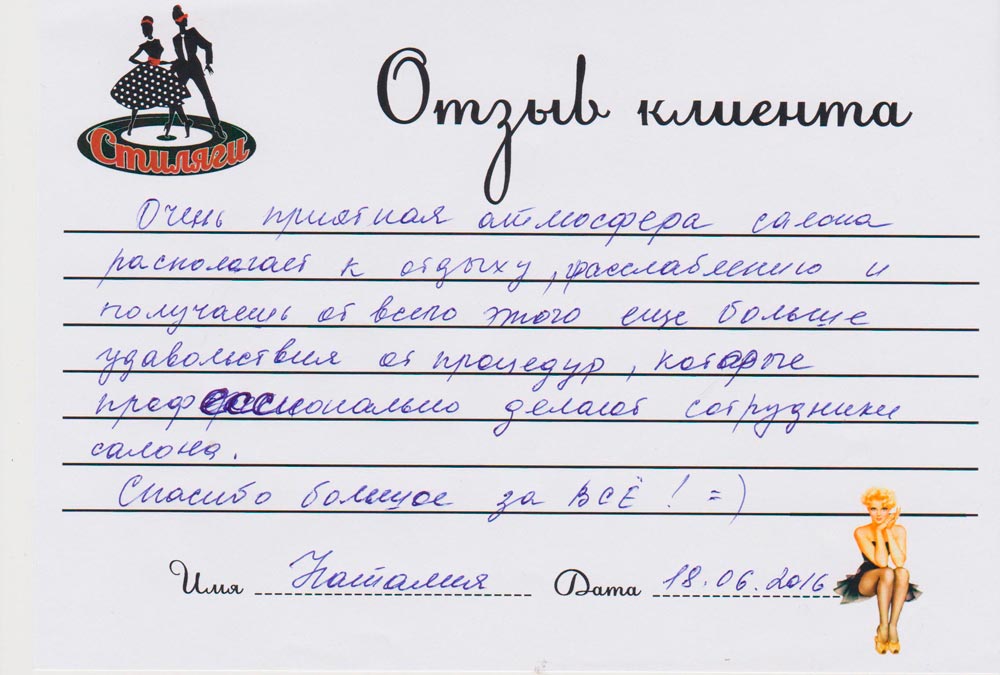 Стиляги
Отзыв клиента
Очень приятная атмосфера салона
распологает к отдыху, расслаблению и
получаешь от всего этого еще больше
удавольствия от процедур, которые
профессионально делают сотрудники
салона.
Спасибо большое за ВСЁ! =)
Имя Наталия Дата 18.06.2016